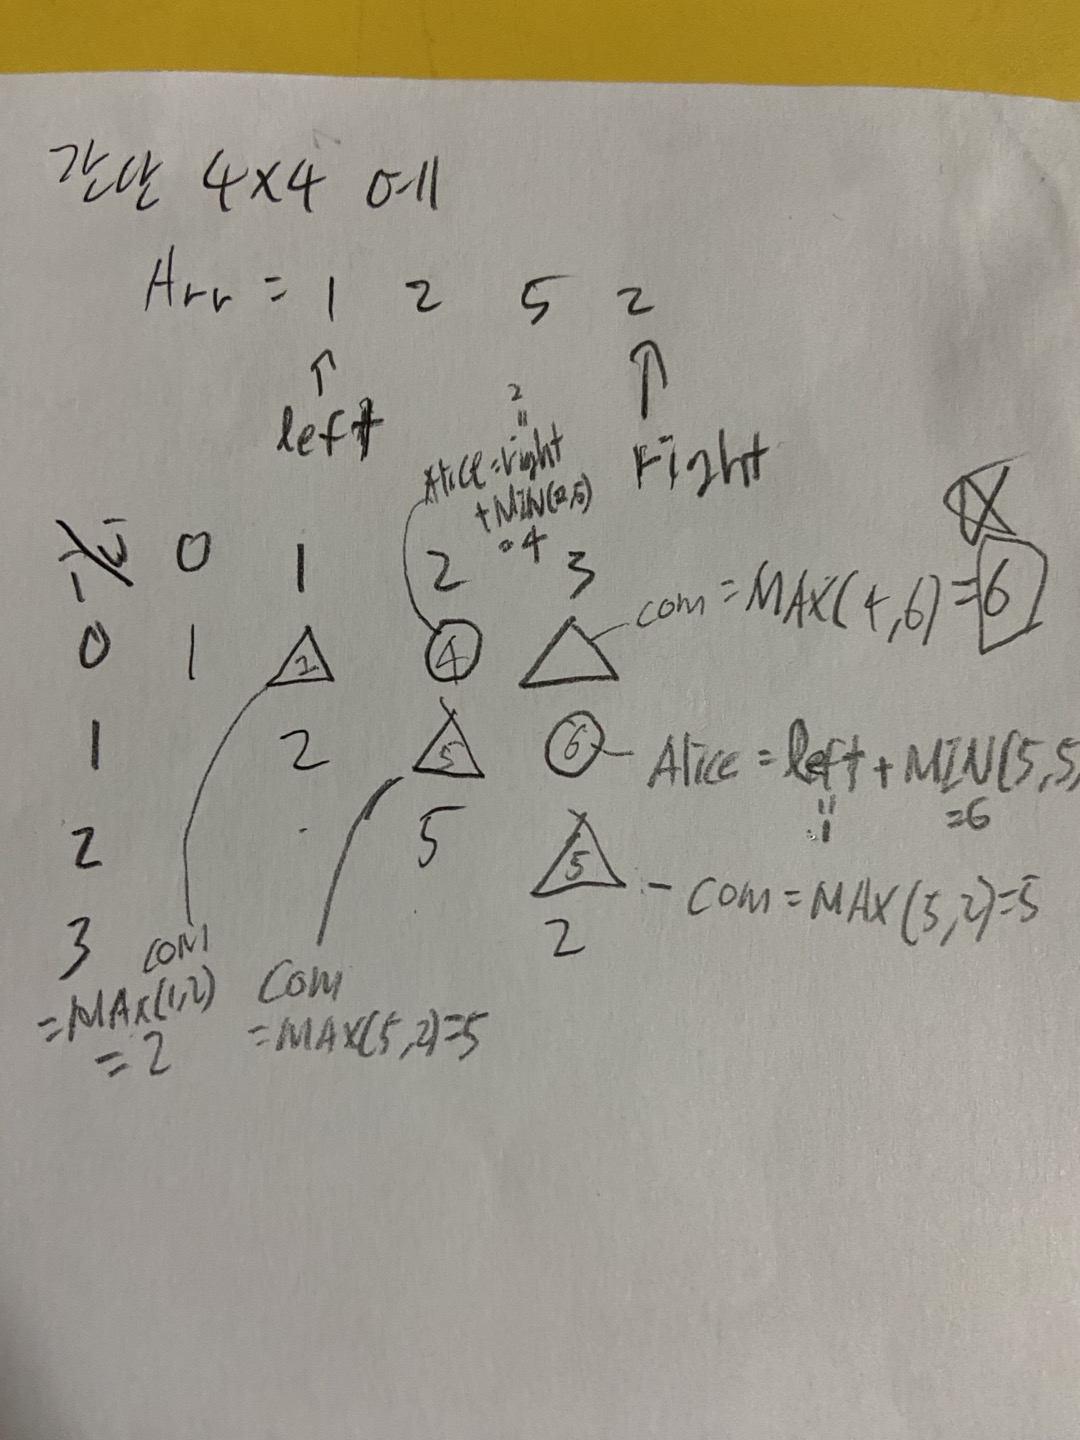 간단 4x4 예
Arr = 1 2 5 2
↑ ↑
left Right
2
"
Alice = right
+ MIN(2,5)
= 4
i\j 0 1 2 3
com = MAX(4,6) = 6
0 1 2 4
1 2 5 6 - Alice = left + MIN(5,5)
" =6
1
2 5 5 - Com = MAX(5,2)=5
3 2
com
= MAX(1,2)
= 2
Com
= MAX(5,2)=5